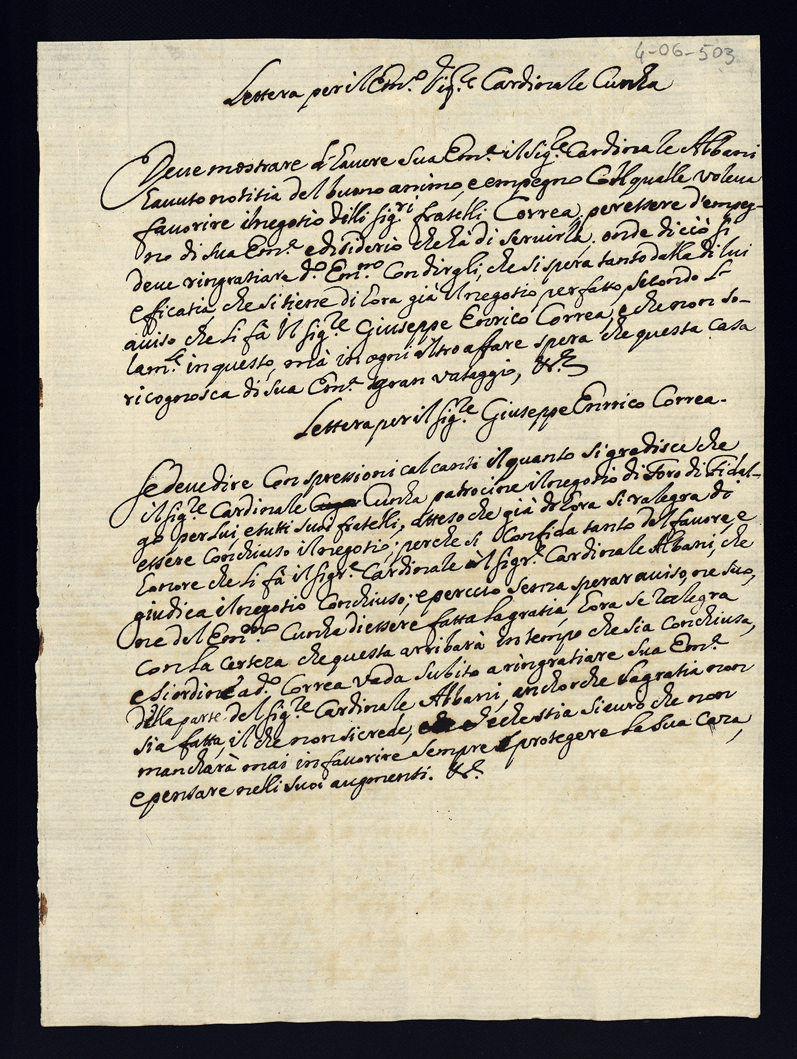 4-06-503
Lettera per il Em.º Sig.re Cardinale Cunha
Deve mostrare d'havere Sua Em.ª il Sig.re Cardinale Albani
havuto notitia del buono animo, e empegno Col qualle voleva
favorire il negotio delli Sig.ri fratelli Correa, per essere d'empeg-
no di sua Em.ª e disiderio che hà di servirla, onde di ciò si
deve ringratiare d.º Em.mo Con dirgli, che si spera tanto dalla di lui
efficatia, che si tiene di hora già il negotio per fatto, secondo l'
aviso che li fà il Sig.re Giuseppe Enrico Correa, e che non so-
lam.te in questo, mà in ogni altro affare spera che questa casa
ricognosca di sua Em.ª gran vataggio, &.ª
Lettera per il Sig.re Giuseppe Enrrico Correa.
Se deve dire Con spressioni calcanti il quanto si gradisce che
il Sig.re Cardinale Cunha patrocine il negotio di Foro di Fidal-
go per lui e tutti suoi fratelli, atteso che già di hora si ralegra di
essere Conchiuso il negotio; perche si Confida tanto del favore, e
honore che li fà il Sigr.e Cardinale al Sigr.e Cardinale Albani, che
giudica il negotio Conchiuso; e per cuto senza sperar aviso, ne suo,
ne del Em.mo Cunha di essere fatta la gratia, hora se ralegra
con la certeza che questa arribarà in tempo che sia Conchiusa,
e si ordine a d.º Correa vada subito a ringratiare sua Em.ª
della parte del Sig.re Cardinale Albani, anchorche la gratia non
sia fatta, il che non si crede, e che stia sicuro che non
mancharà mai in favorire sempre e protegere la sua Caza,
e pensare nelli suoi augmenti. &.ª